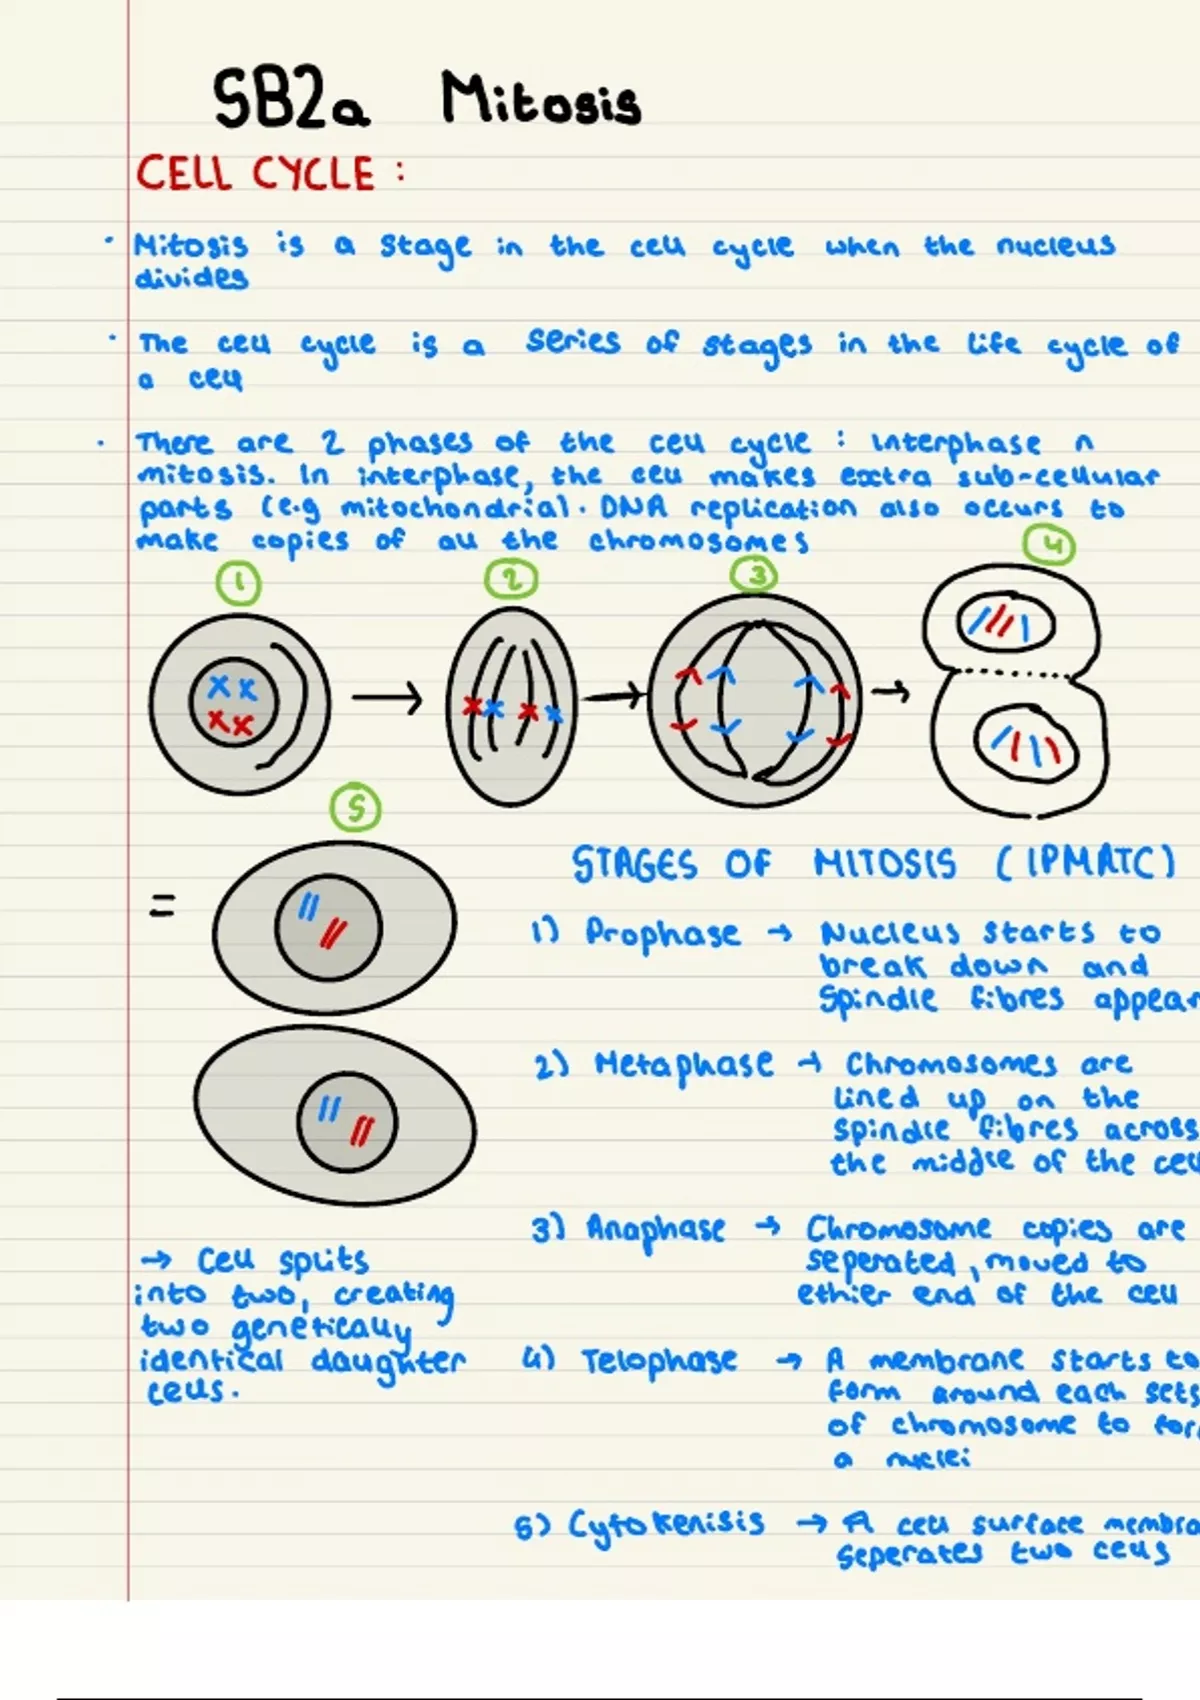 SB2a Mitosis
CELL CYCLE :
· Mitosis is a stage in the cell cycle when the nucleus
divides
· The cell cycle is a series of stages in the life cycle of
a cell
· There are 2 phases of the cell cycle : interphase n
mitosis. In interphase, the cell makes extra sub-cellular
parts (e.g mitochondria). DNA replication also occurs to
make copies of all the chromosomes
1
2
3
4
5
=
→ Cell splits
into two, creating
two genetically
identical daughter
cells.
STAGES OF MITOSIS (IPMATC)
1) Prophase → Nucleus starts to
break down and
Spindle fibres appear
2) Metaphase → Chromosomes are
lined up on the
spindle fibres across
the middle of the cell
3) Anaphase → Chromosome copies are
seperated, moved to
ethier end of the cell
4) Telophase → A membrane starts to
form around each sets
of chromosome to for
a nuclei
5) Cytokenisis → A cell surface membra
seperates two cells